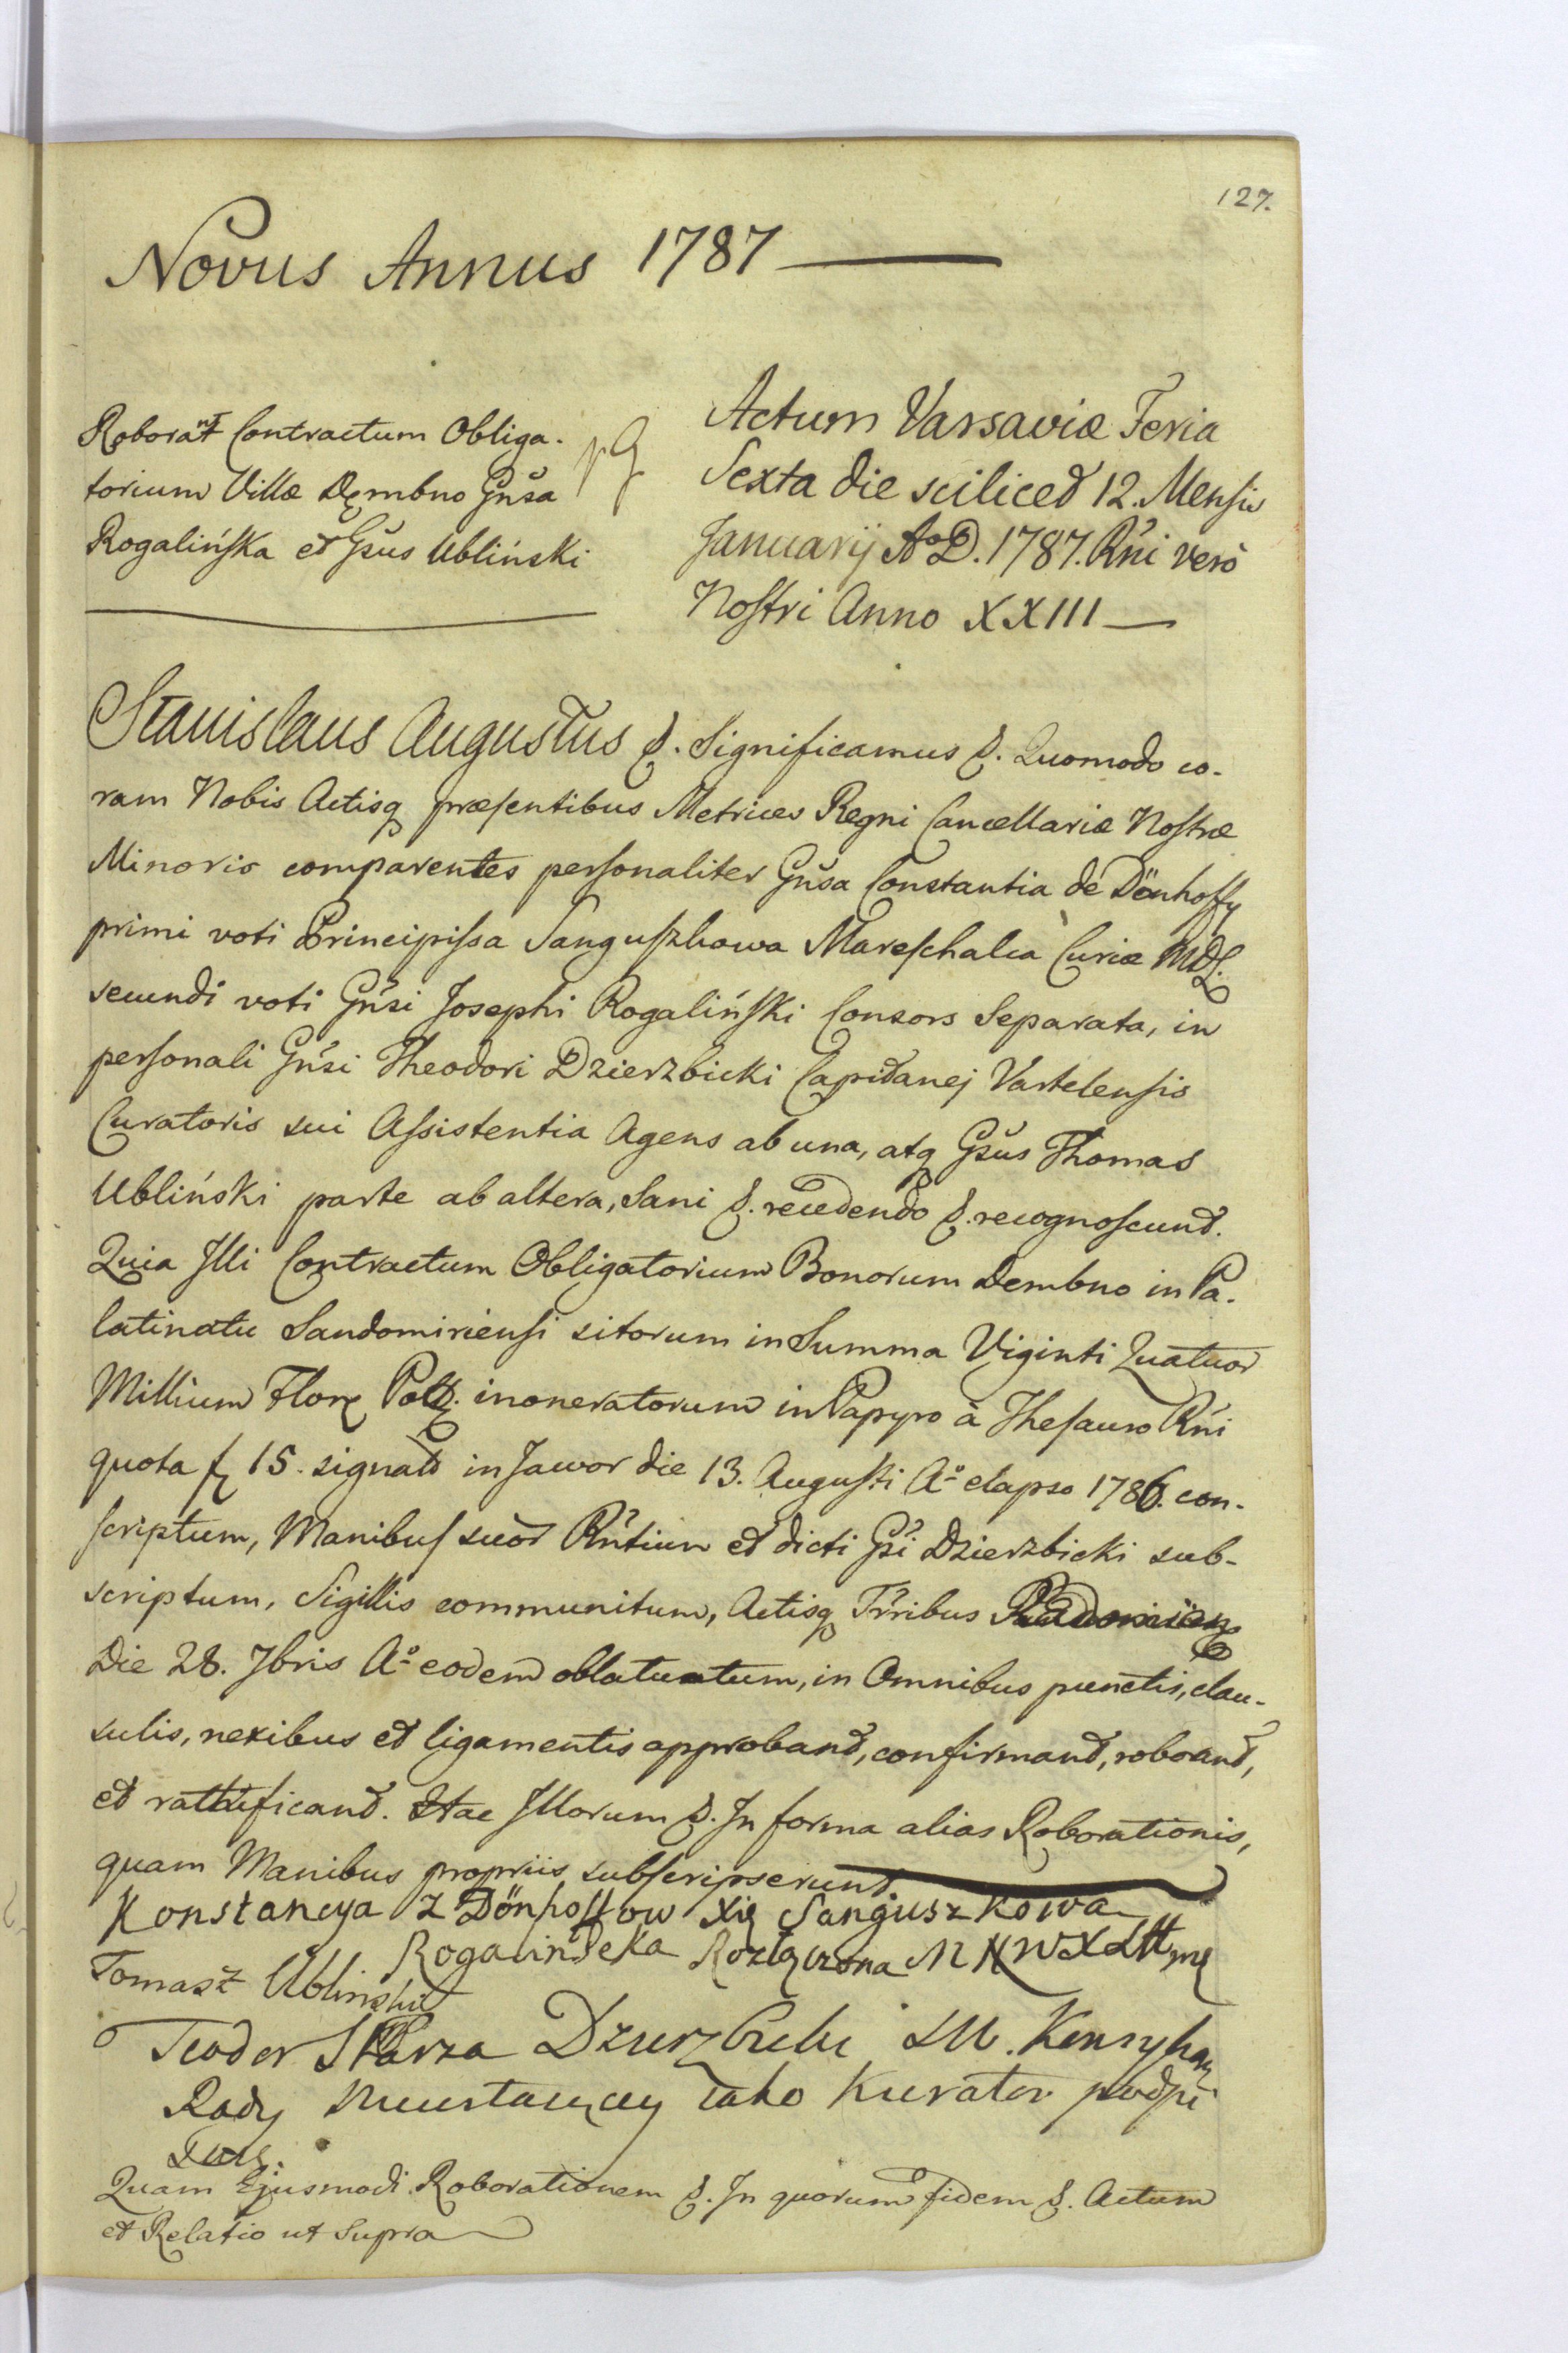 127.
Novus Annus 1787
Roborant Contractum Obliga-
torium Villæ Dembno Gnsa
Rogalińska et Gsus Ubliński
Actum Varsaviæ Feria
Sexta die sciliced 12. Mensis
Januarij Ao D. 1787. Rńi verò
Nostri Anno XXIII
Stanislaus Augustus &. Significamus &. Quomodo co-
ram Nobis Actisq præsentibus Metrices Regni Cancellariæ Nostræ
Minoris comparentes personaliter Gnsa Constantia de Dönhoffy
primi voti Principissa Sanguszkowa Mareschalca Curiæ MDL.
secundi voti Gńsi Josephi Rogaliński Consors Separata, in
personali Gńsi Theodori Dzierzbicki Capitanej Vartelensis
Curatoris sui Assistentia Agens ab una, atq Gsus Thomas
Ubliński parte ab altera, Sani &. recedendo &. recognoscund.
Quia Illi Contractum Obligatorium Bonorum Dembno in Pa-
latinatu Sandomiriensi sitorum in Summa Viginti Quatuor
Millium Flor Poll. inoneratorum in Papyro à Thesauro Rńi
quota f 15. signato in Jawor die 13. Augusti Ao elapso 1786. con-
scriptum, Manibus suor Rńtium et dicti Gsi Dzierzbicki sub-
scriptum, Sigillis communitum, Actisq Trribus Radomien
Die 28. 7bris Ao eodem oblatum, in Omnibus punctis, clau-
sulis, nexibus et ligamentis approband, confirmand, roborand,
et ratificand. Hac Illorum &. In forma alias Roborationis,
quam Manibus propriis subscripserunt
Konstancya z Dönhoffow Xię Sanguszkowa
Rogalinska Rozłączona M N W X Litt
Tomasz Ublinski
Teodor Skarza Dzierzbicki Konsyliarz
Rady Nieustaiącey iako Kurator podpi
Quam Ejusmodi Roborationem &. In quorum fidem &. Actum
et Relatio ut Supra